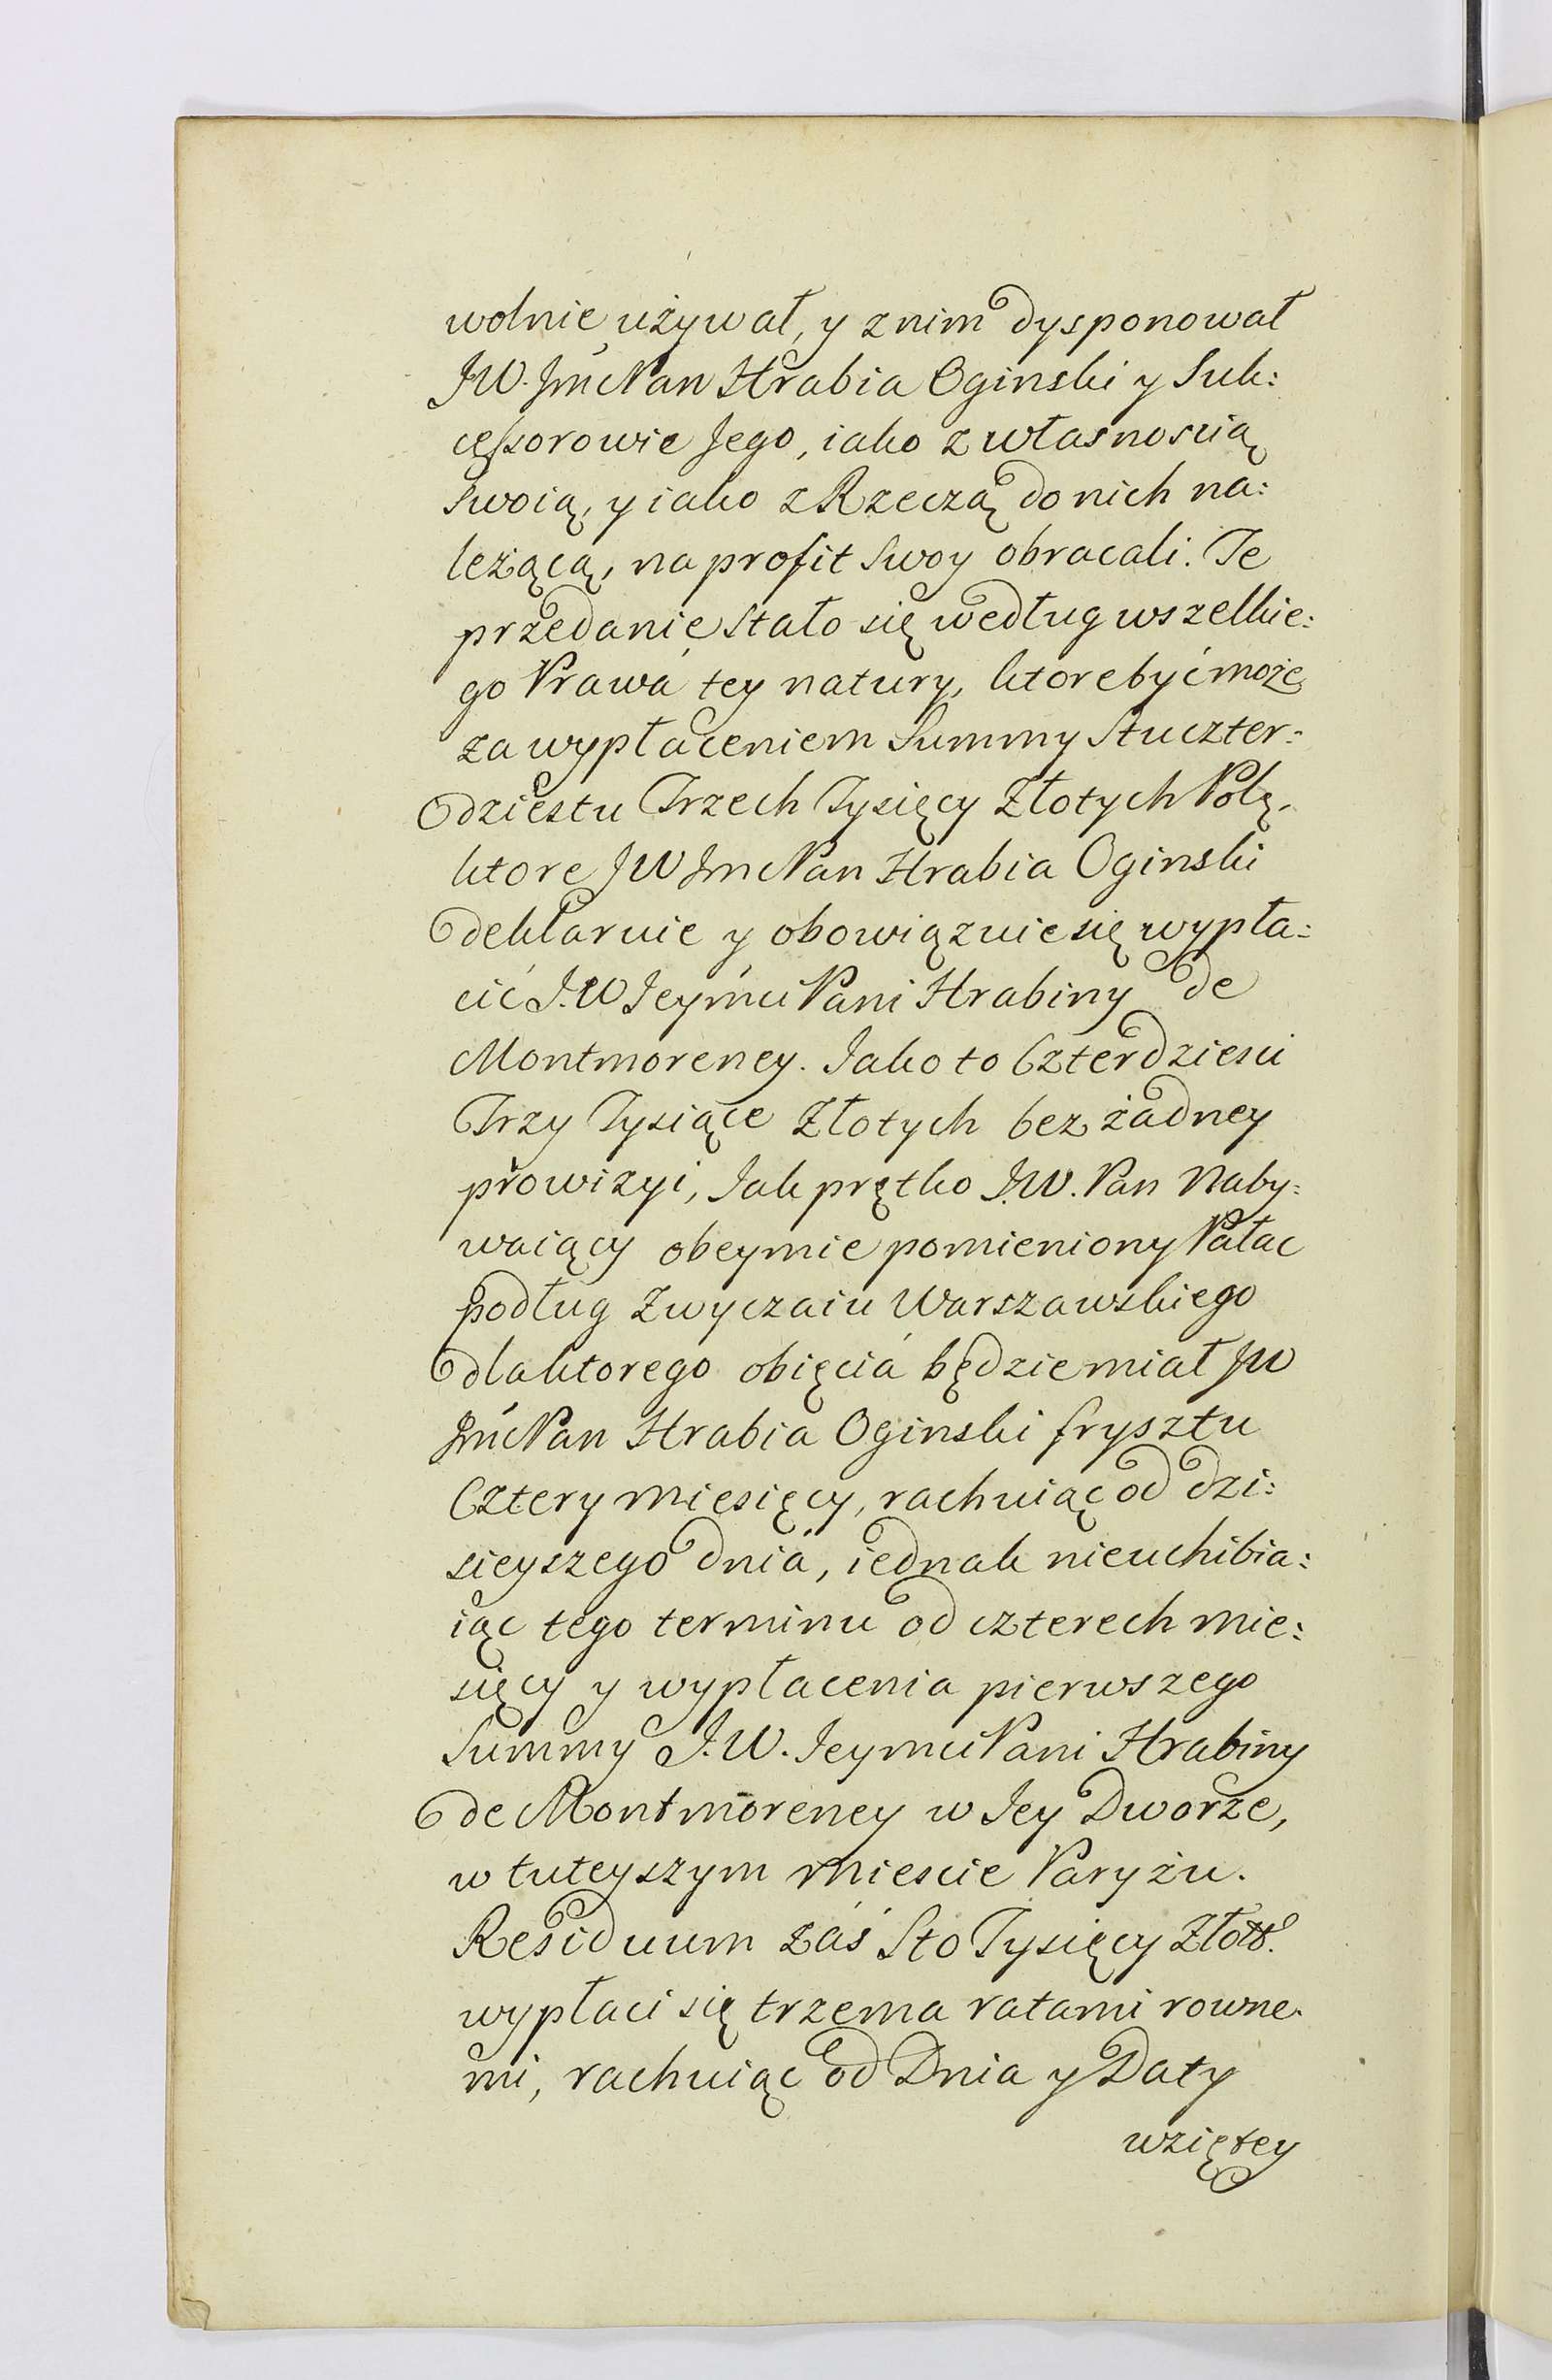 wolnie używał, y z nim dysponował
JW. Jmć Pan Hrabia Oginski y Suk:
cessorowie Jego, iako z własnoscią
swoią, y iako z Rzeczą do nich na:
leżącą, na profit swoy obracali. Te
przedanie stało się według wszelkie:
go Prawa tey natury, ktore być może
za wypłaceniem Summy Stuczter:
dziestu Trzech Tysięcy Złotych Pols.
ktore JW Jmć Pan Hrabia Oginski
deklaruie y obowiązuie się wypła:
cić J.W Jeymci Pani Hrabiny de
Montmorency. Jako to Czterdziesci
Trzy Tysiące Złotych bez żadney
prowizyi, Jak prętko J.W. Pan Naby:
waiący obeymie pomieniony Pałac
podług Zwyczaiu Warszawskiego
dla ktorego obięcia będzie miał JW
Jmć Pan Hrabia Oginski frysztu
Cztery Miesięcy, rachuiąc od dzi:
sieyszego dnia, iednak nieuchibia:
iąc tego terminu od czterech Mie:
sięcy y wypłacenia pierwszego
Summy J.W. Jeymci Pani Hrabiny
de Montmorency w Jey Dworze,
w tuteyszym Miescie Paryżu.
Residuum zaś Sto Tysięcy Złott.
wypłaci się trzema ratami rowne.
mi, rachuiąc od Dnia y Daty
wziętey